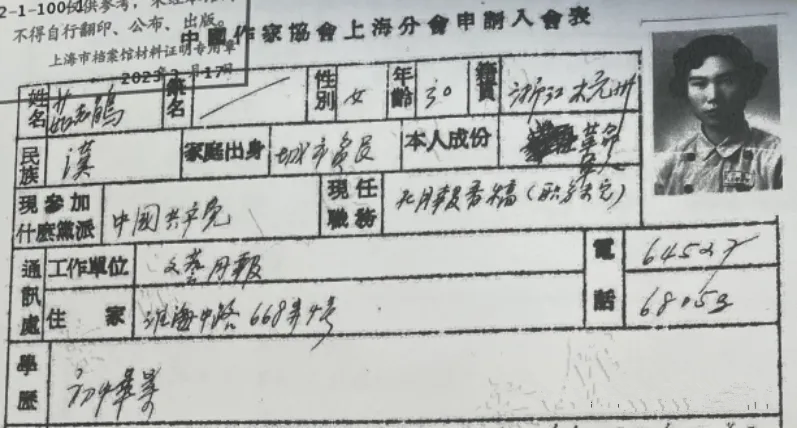 2-1-100
供参考，未经
不得自行翻印、公布、出版。
上海市档案馆材料证明专用章
2023 月17日
中國作家協會上海分會申請入會表
姓名 茹志鵑 筆名 性別 女 年齡 30 籍貫 浙江 杭州
民族 漢 家庭出身 城市貧民 本人成份 革命軍人
現參加什麽黨派 中國共产党 現任職務 月報看稿（职务未定）
通訊處 工作單位 文藝月報 電話 64527
住家 淮海中路 668弄4号 68053
學歷 初中畢業